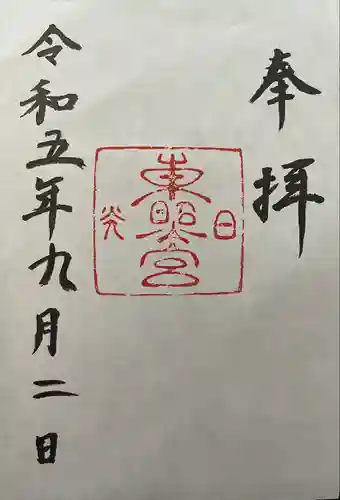 奉拝
東照宮
令和五年九月二日